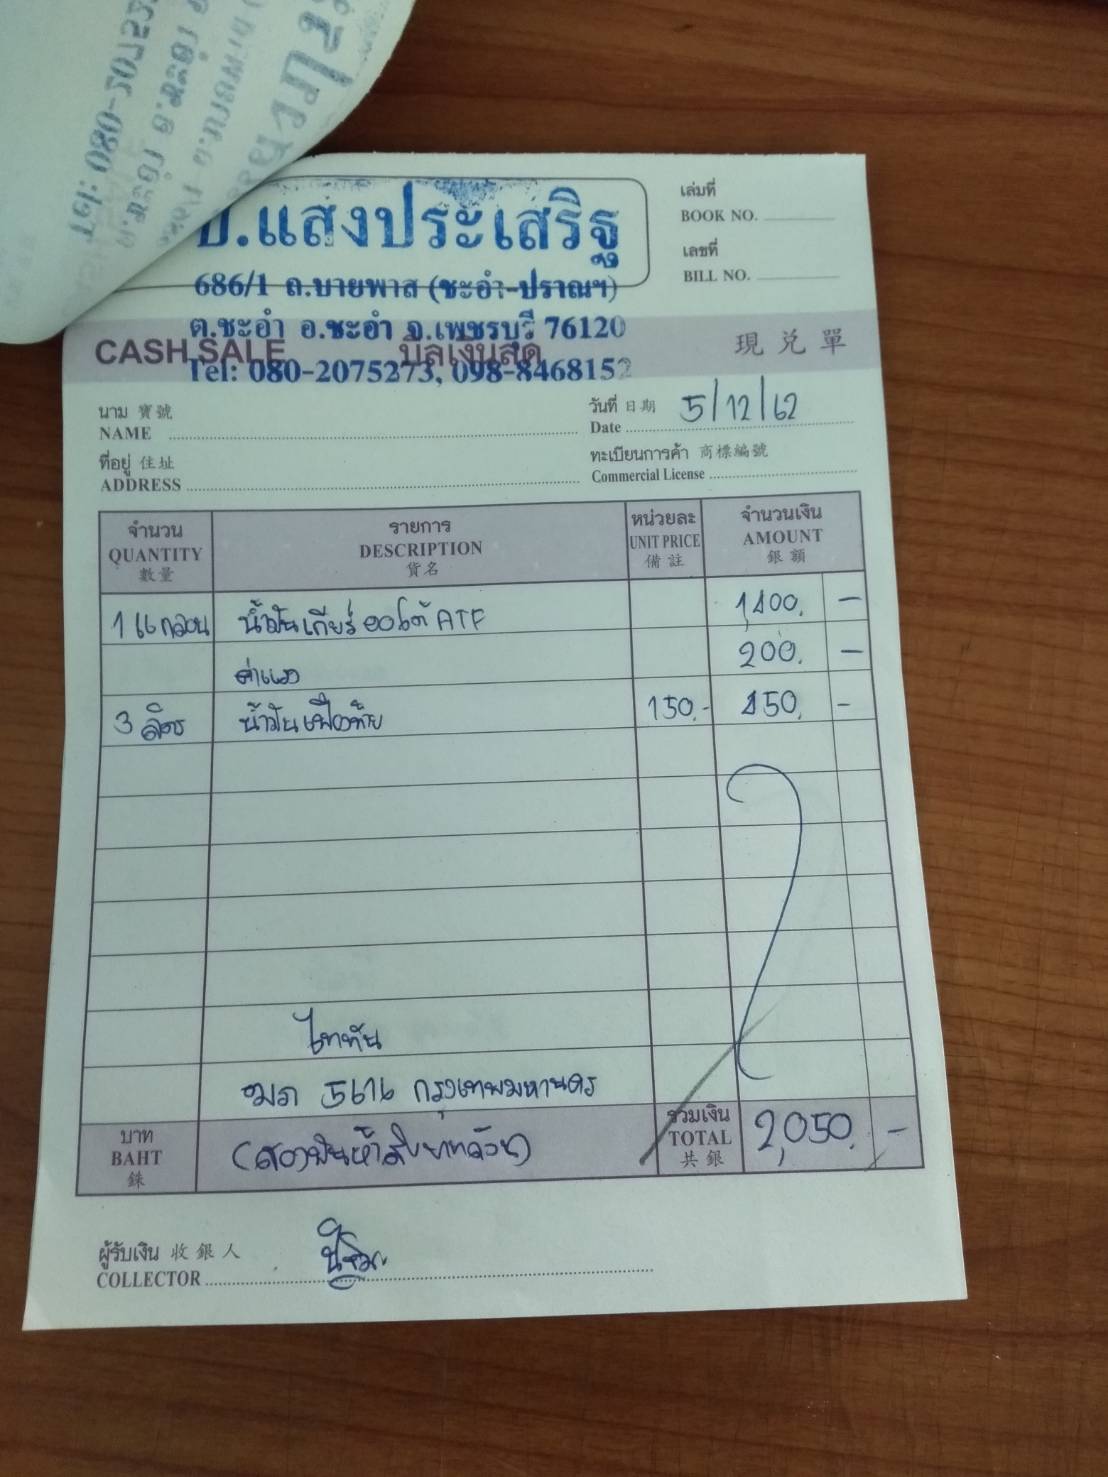 ป.แสงประเสริฐ
686/1 ถ.บายพาส (ชะอำ-ปราณฯ)
ต.ชะอำ อ.ชะอำ จ.เพชรบุรี 76120
Tel: 080-2075273, 098-8468152
เล่มที่
BOOK NO.
เลขที่
BILL NO.
CASH SALE บิลเงินสด 現兌單
นาม 寶號
NAME
วันที่ 日期 5/12/62
Date
ที่อยู่ 住址
ADDRESS
ทะเบียนการค้า 商標編號
Commercial License
จำนวน รายการ หน่วยละ จำนวนเงิน
QUANTITY DESCRIPTION UNIT PRICE AMOUNT
數量 貨名 備註 銀額
1 แกลอน น้ำมันเกียร์ออโต้ ATF 1,400. -
ค่าแรง 200. -
3 ลิตร น้ำมันเฟืองท้าย 150.- 450. -
ไททัน
ฒภ 5616 กรุงเทพมหานคร
บาท
BAHT
銖
(สองพันห้าสิบบาทถ้วน)
รวมเงิน
TOTAL
共銀
2,050. -
ผู้รับเงิน 收銀人
COLLECTOR